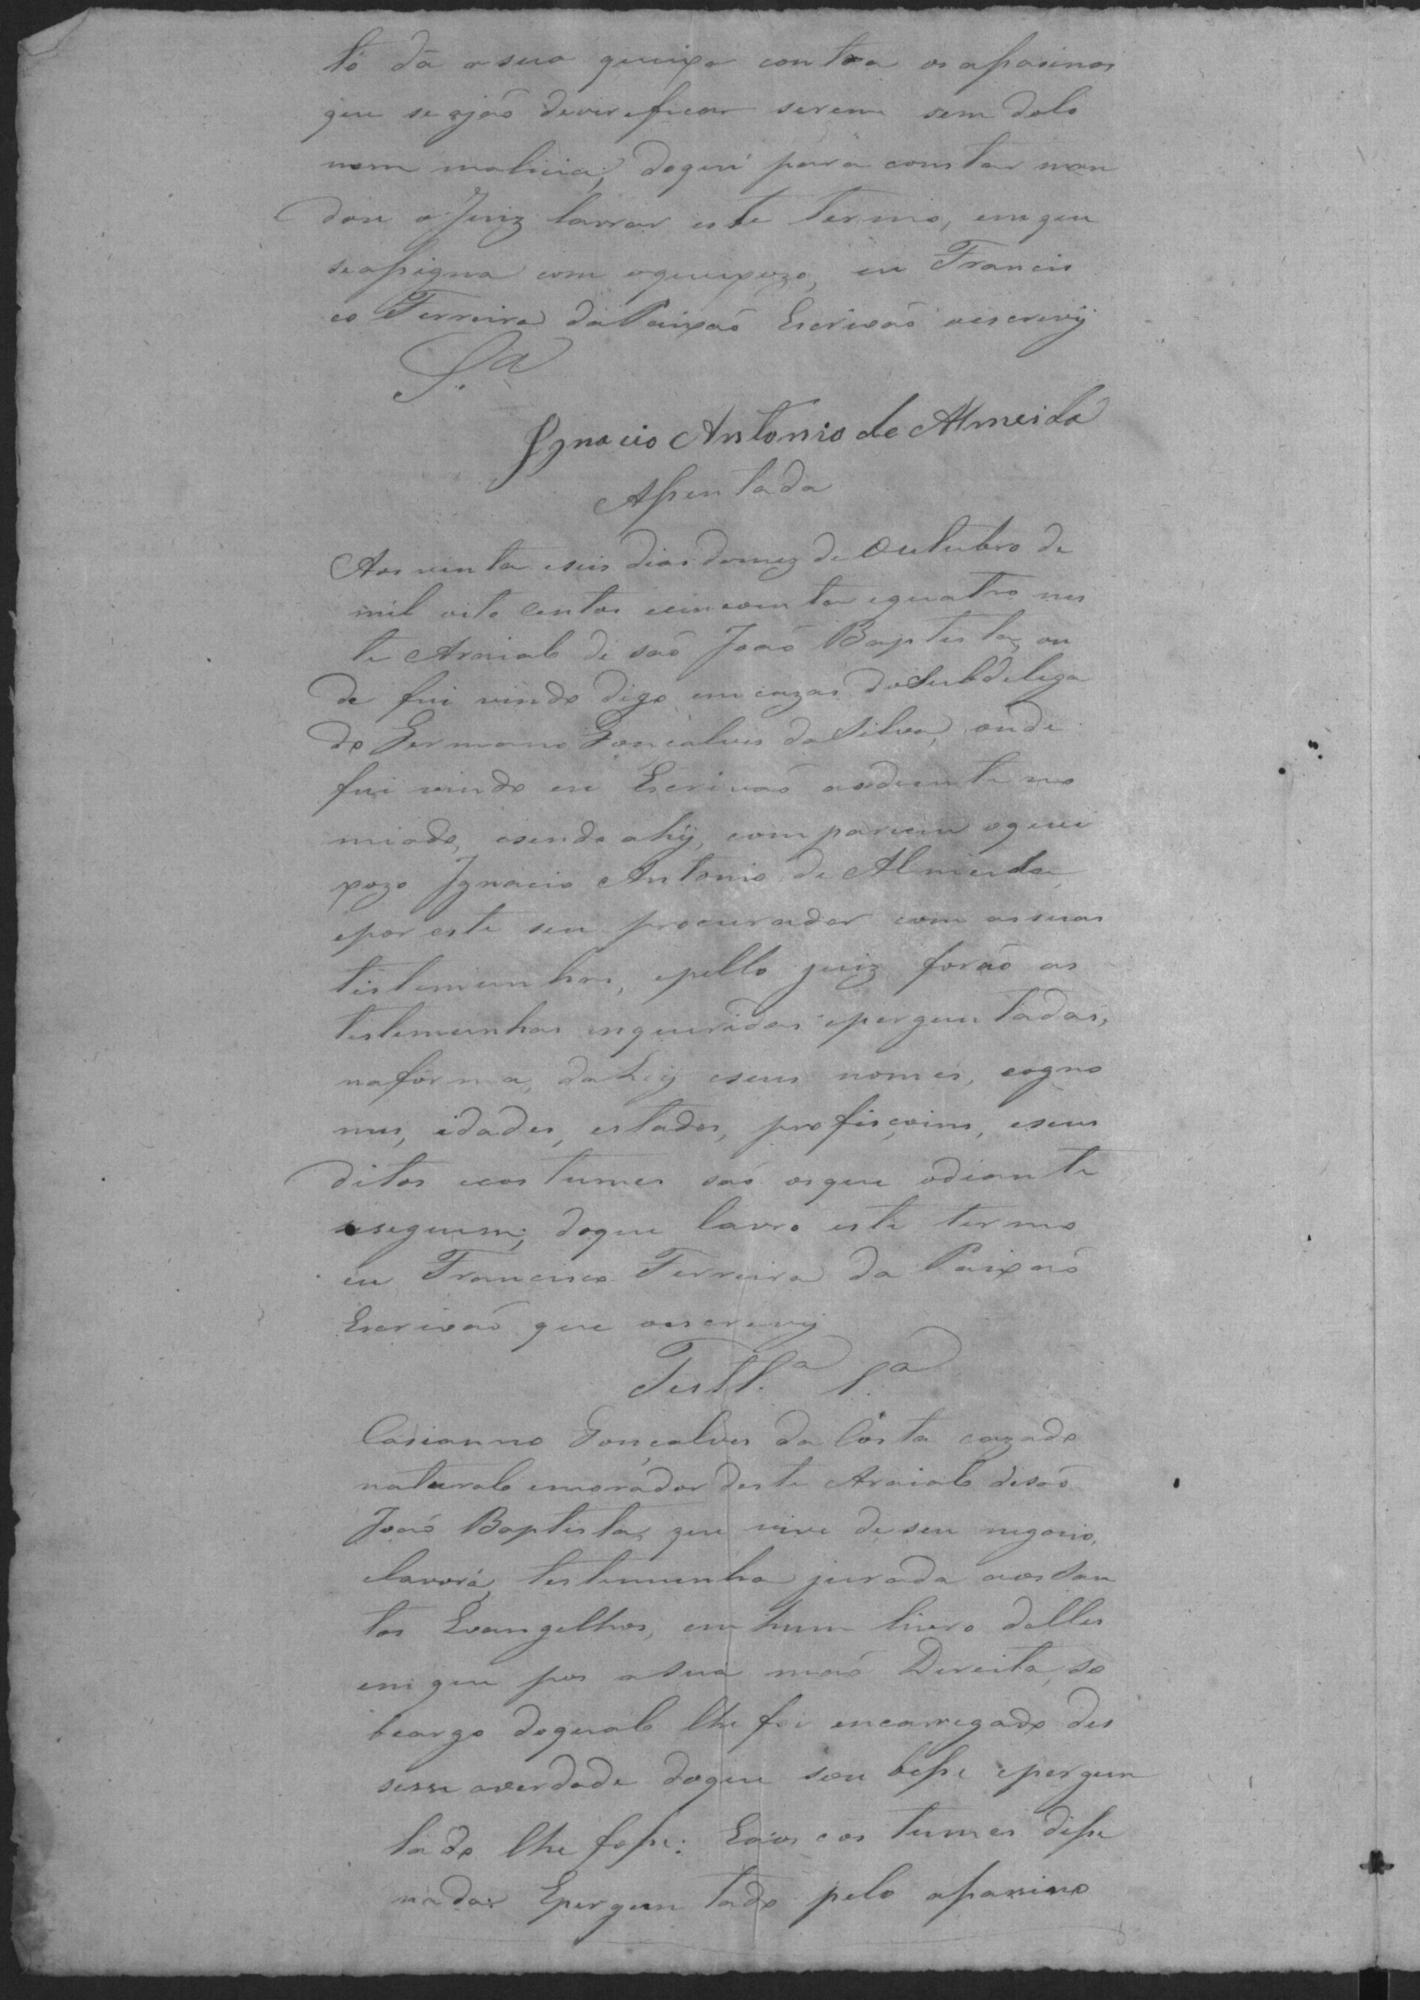 to dá a sua queixa contra os aſsasinos
que seajão deverificar serem sem dolo
nem malicia, doque para constar man
dou o Juiz lavrar este termo, emque
seaſsigna com oqueixozo, eu Francis
co Ferreira da Paixaõ Escrivaõ oescrevÿ
S.ª
Ignacio Antonio de Almeida
Aſsentada
Aos vinta eseis dias domez de Outubro de
mil oito centos ecincoenta equatro nes
te Araial de saõ Joaõ Baptista, on
de fui vindo digo emcazas doSubdelega
do Germano Gonçalves da Silva, onde
fui vindo eu Escrivaõ aodiente no
miado, esendo ahÿ, comparceu oquei
xozo Ignacio Antonio de Almeida
epor este seu procurador com assuas
testemunhas, epello juiz foraõ as
testemunhas inqueridas eperguntadas,
naforma, daLeÿ eseus nomes, cogno
mes, idades, estados, profiscoins, eseus
ditos ecostumes saõ osque adiante
seseguem; doque lavro este termo
eu Francisco Ferreira da Paixaõ
Escrivaõ que oescrevÿ
Testt.ª 1.ª
Casianno Gonçalves da Costa cazado
natural emorador deste Araial desaõ
Joaõ Baptista, que vive deseu negocio,
elavora, testemunha jurada aosSan
tos Evangelhos, em hum livro delles
emque pos asua maõ Direita, so
bcargo doqual lhe foi encarregado dis
sesse averdade doque sou beſse epergun
tado lhe foſse: Eaos costumes diſse
nadar Epergun tado pelo aſsasino